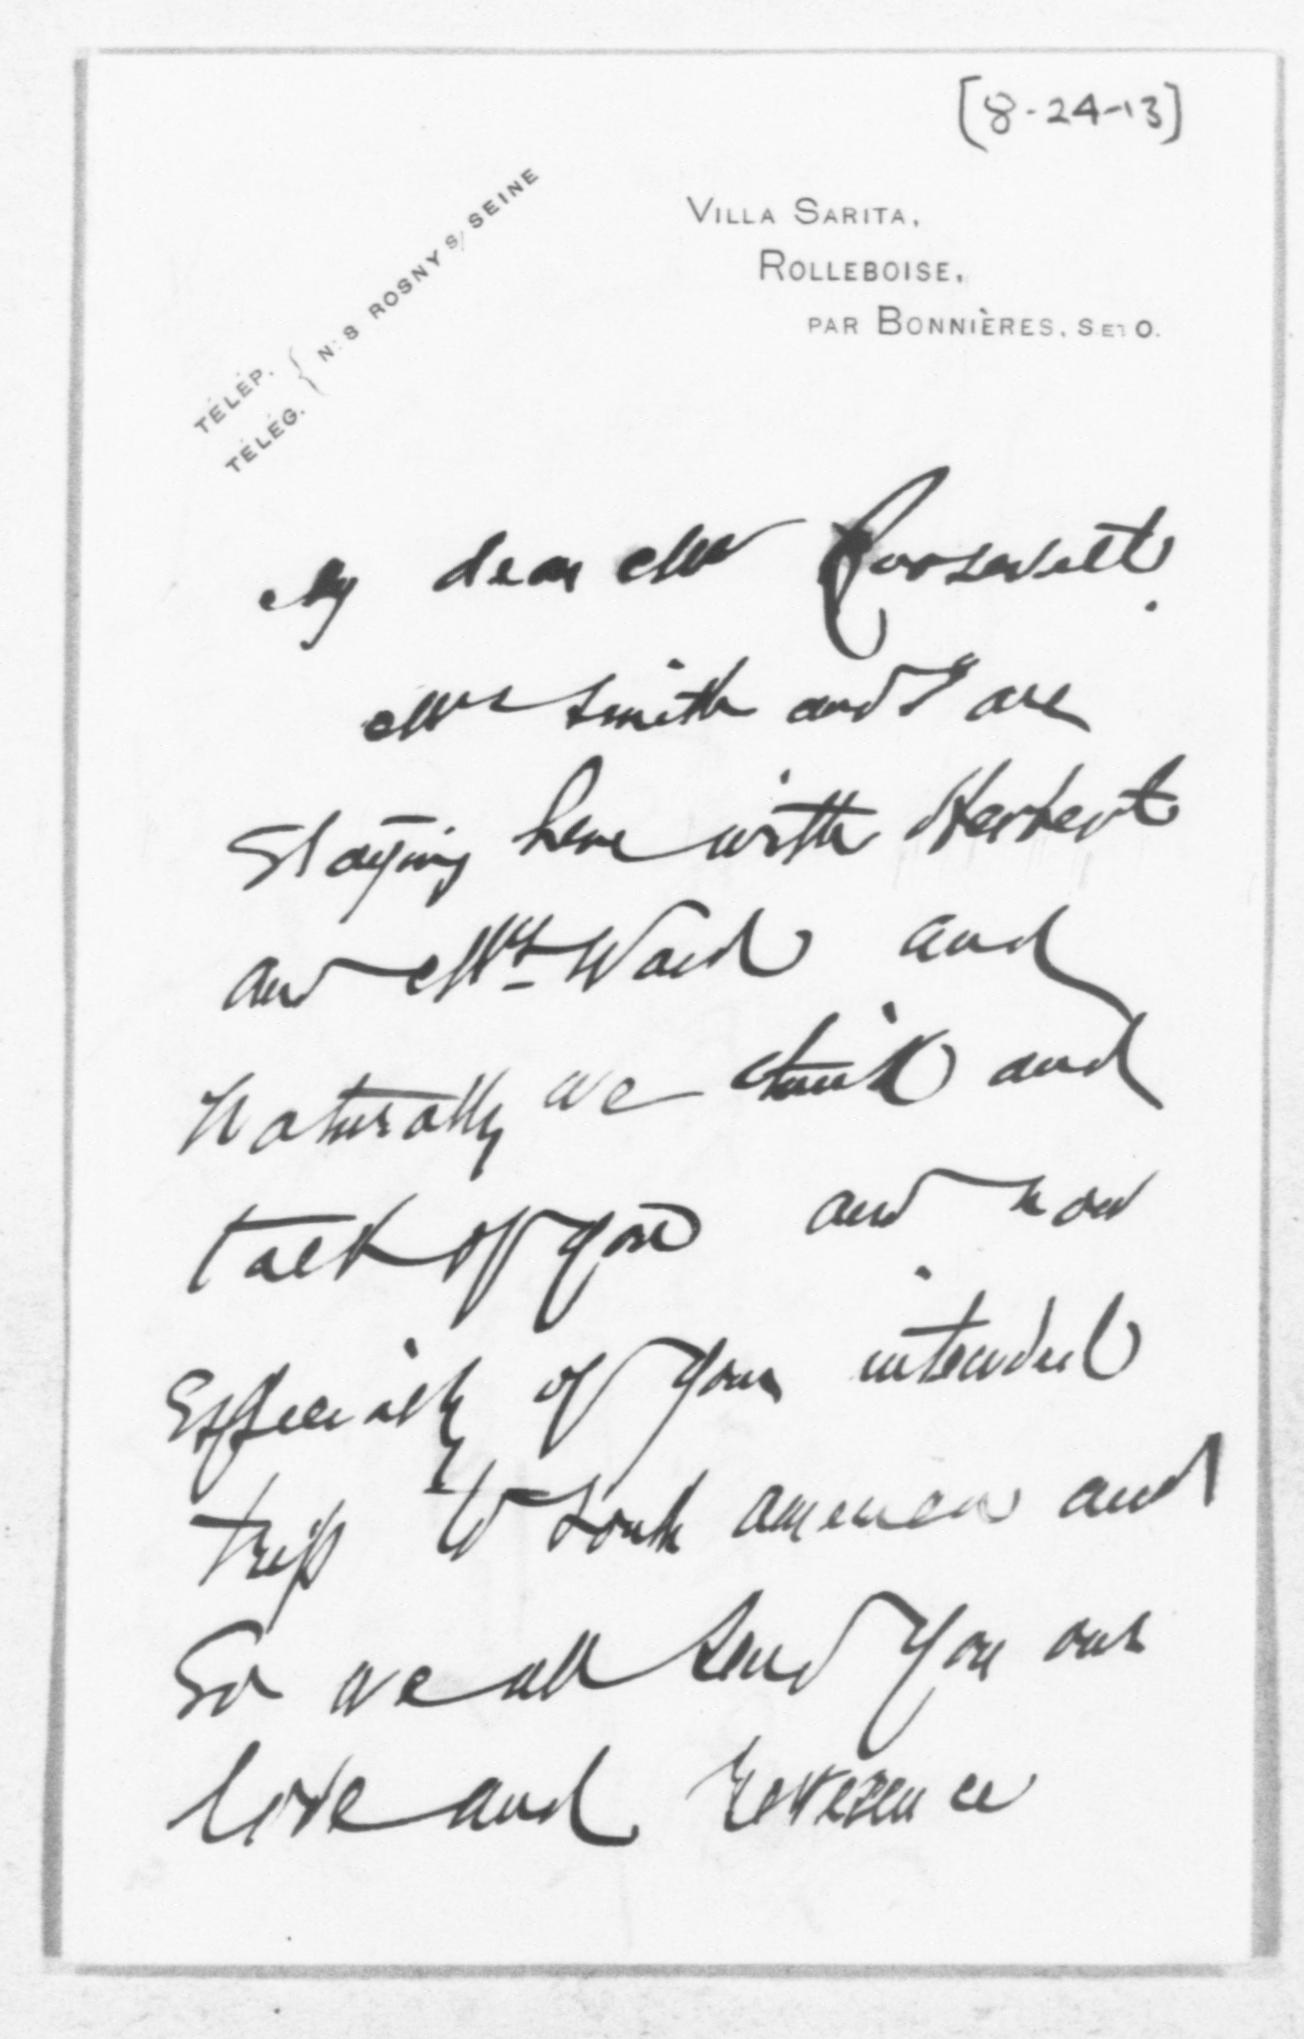 [8-24-13]
VILLA SARITA,
ROLLEBOISE,
PAR BONNIÈRES, S. ET O.
TÉLÉP.
TÉLÉG.
N: 8 ROSNY S/ SEINE
My dear Mr Roosevelt.
Mrs Smith and I are
Staying here with Herbert
and Mrs Ward and
Naturally we think and
talk of you and now
Especially of your intended
trip to South America and
So we all send you our
love and reverence